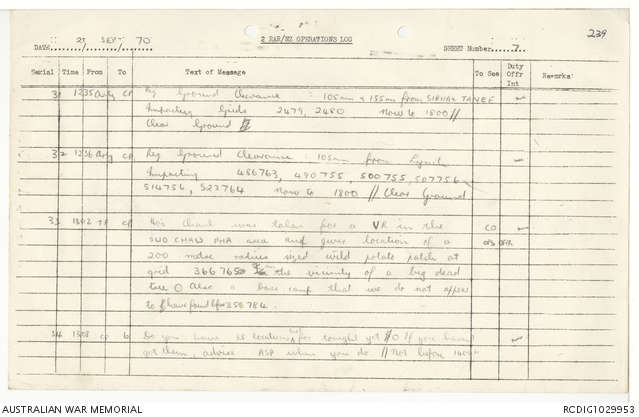 239
2 RAR/NZ OPERATIONS LOG
DATE 25 SEP 70
SHEET Number 7
Serial Time From To Text of Message To See Duty Offr Int Remarks
31 1235 Arty CP Req Ground Clearance : 105mm & 155mm from
Impacting Grids 2479, 2480 Now to 1800 //
Clear Ground
32 1236 Arty CP Req Ground Clearance : 105mm from Lynch
Impacting 486763, 490755, 500755, 507756
514756, 523764 Now to 1800 // Clear Ground
33 CP Hoi Chanh was taken for a VR in the CO
SUO CHAU PHA area and gives location of a OPS OFFR
200 metre radius sized wild potato patch at
grid 366765 in the vicinity of a big dead
tree Also a base camp that we do not appear
to have found
34 CP 6 Do you have locations for tonight yet // If you haven't
got them, advise ASP when you do // Not before
AUSTRALIAN WAR MEMORIAL
RCDIG1029953